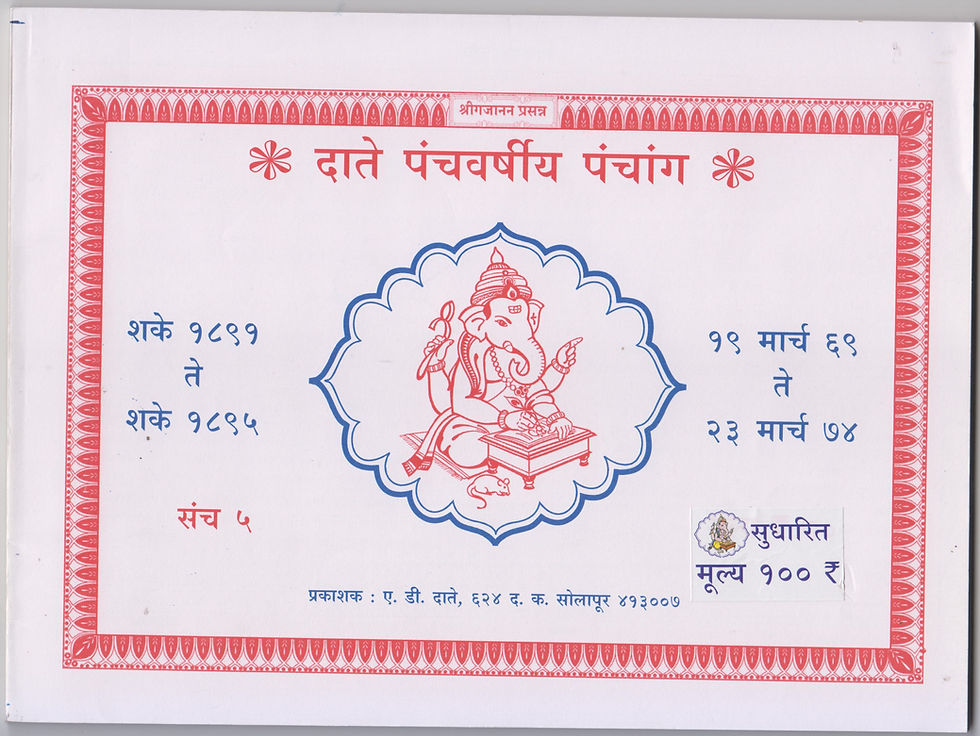 श्रीगजानन प्रसन्न
दाते पंचवर्षीय पंचांग
शके १८९१
ते
शके १८९५
१९ मार्च ६९
ते
२३ मार्च ७४
संच ५
सुधारित
मूल्य १०० ₹
प्रकाशक : ए. डी. दाते, ६२४ द. क. सोलापूर ४१३००७